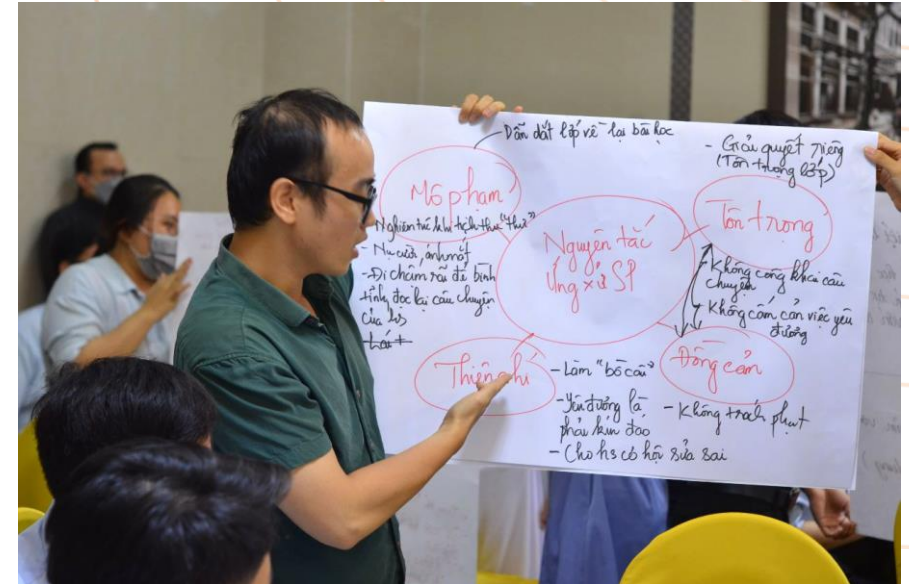 - Dẫn dắt lớp về lại bài học
- Giải quyết riêng
(Tôn trọng lớp)
Mô phạm
Nghiêm túc khi tịch thu "thư"
- Nụ cười, ánh mắt
- Đi chậm rãi để bình
tĩnh đọc lại câu chuyện
của hs
Nguyên tắc
Ứng xử SP
Tôn trọng
- Không công khai câu
chuyện
- Không cấm cản việc yêu
đương
Thiện chí
- Làm "bồ câu"
- Yêu đương là
phải kín đáo
- Cho hs cơ hội sửa sai
Đồng cảm
- Không trách phạt